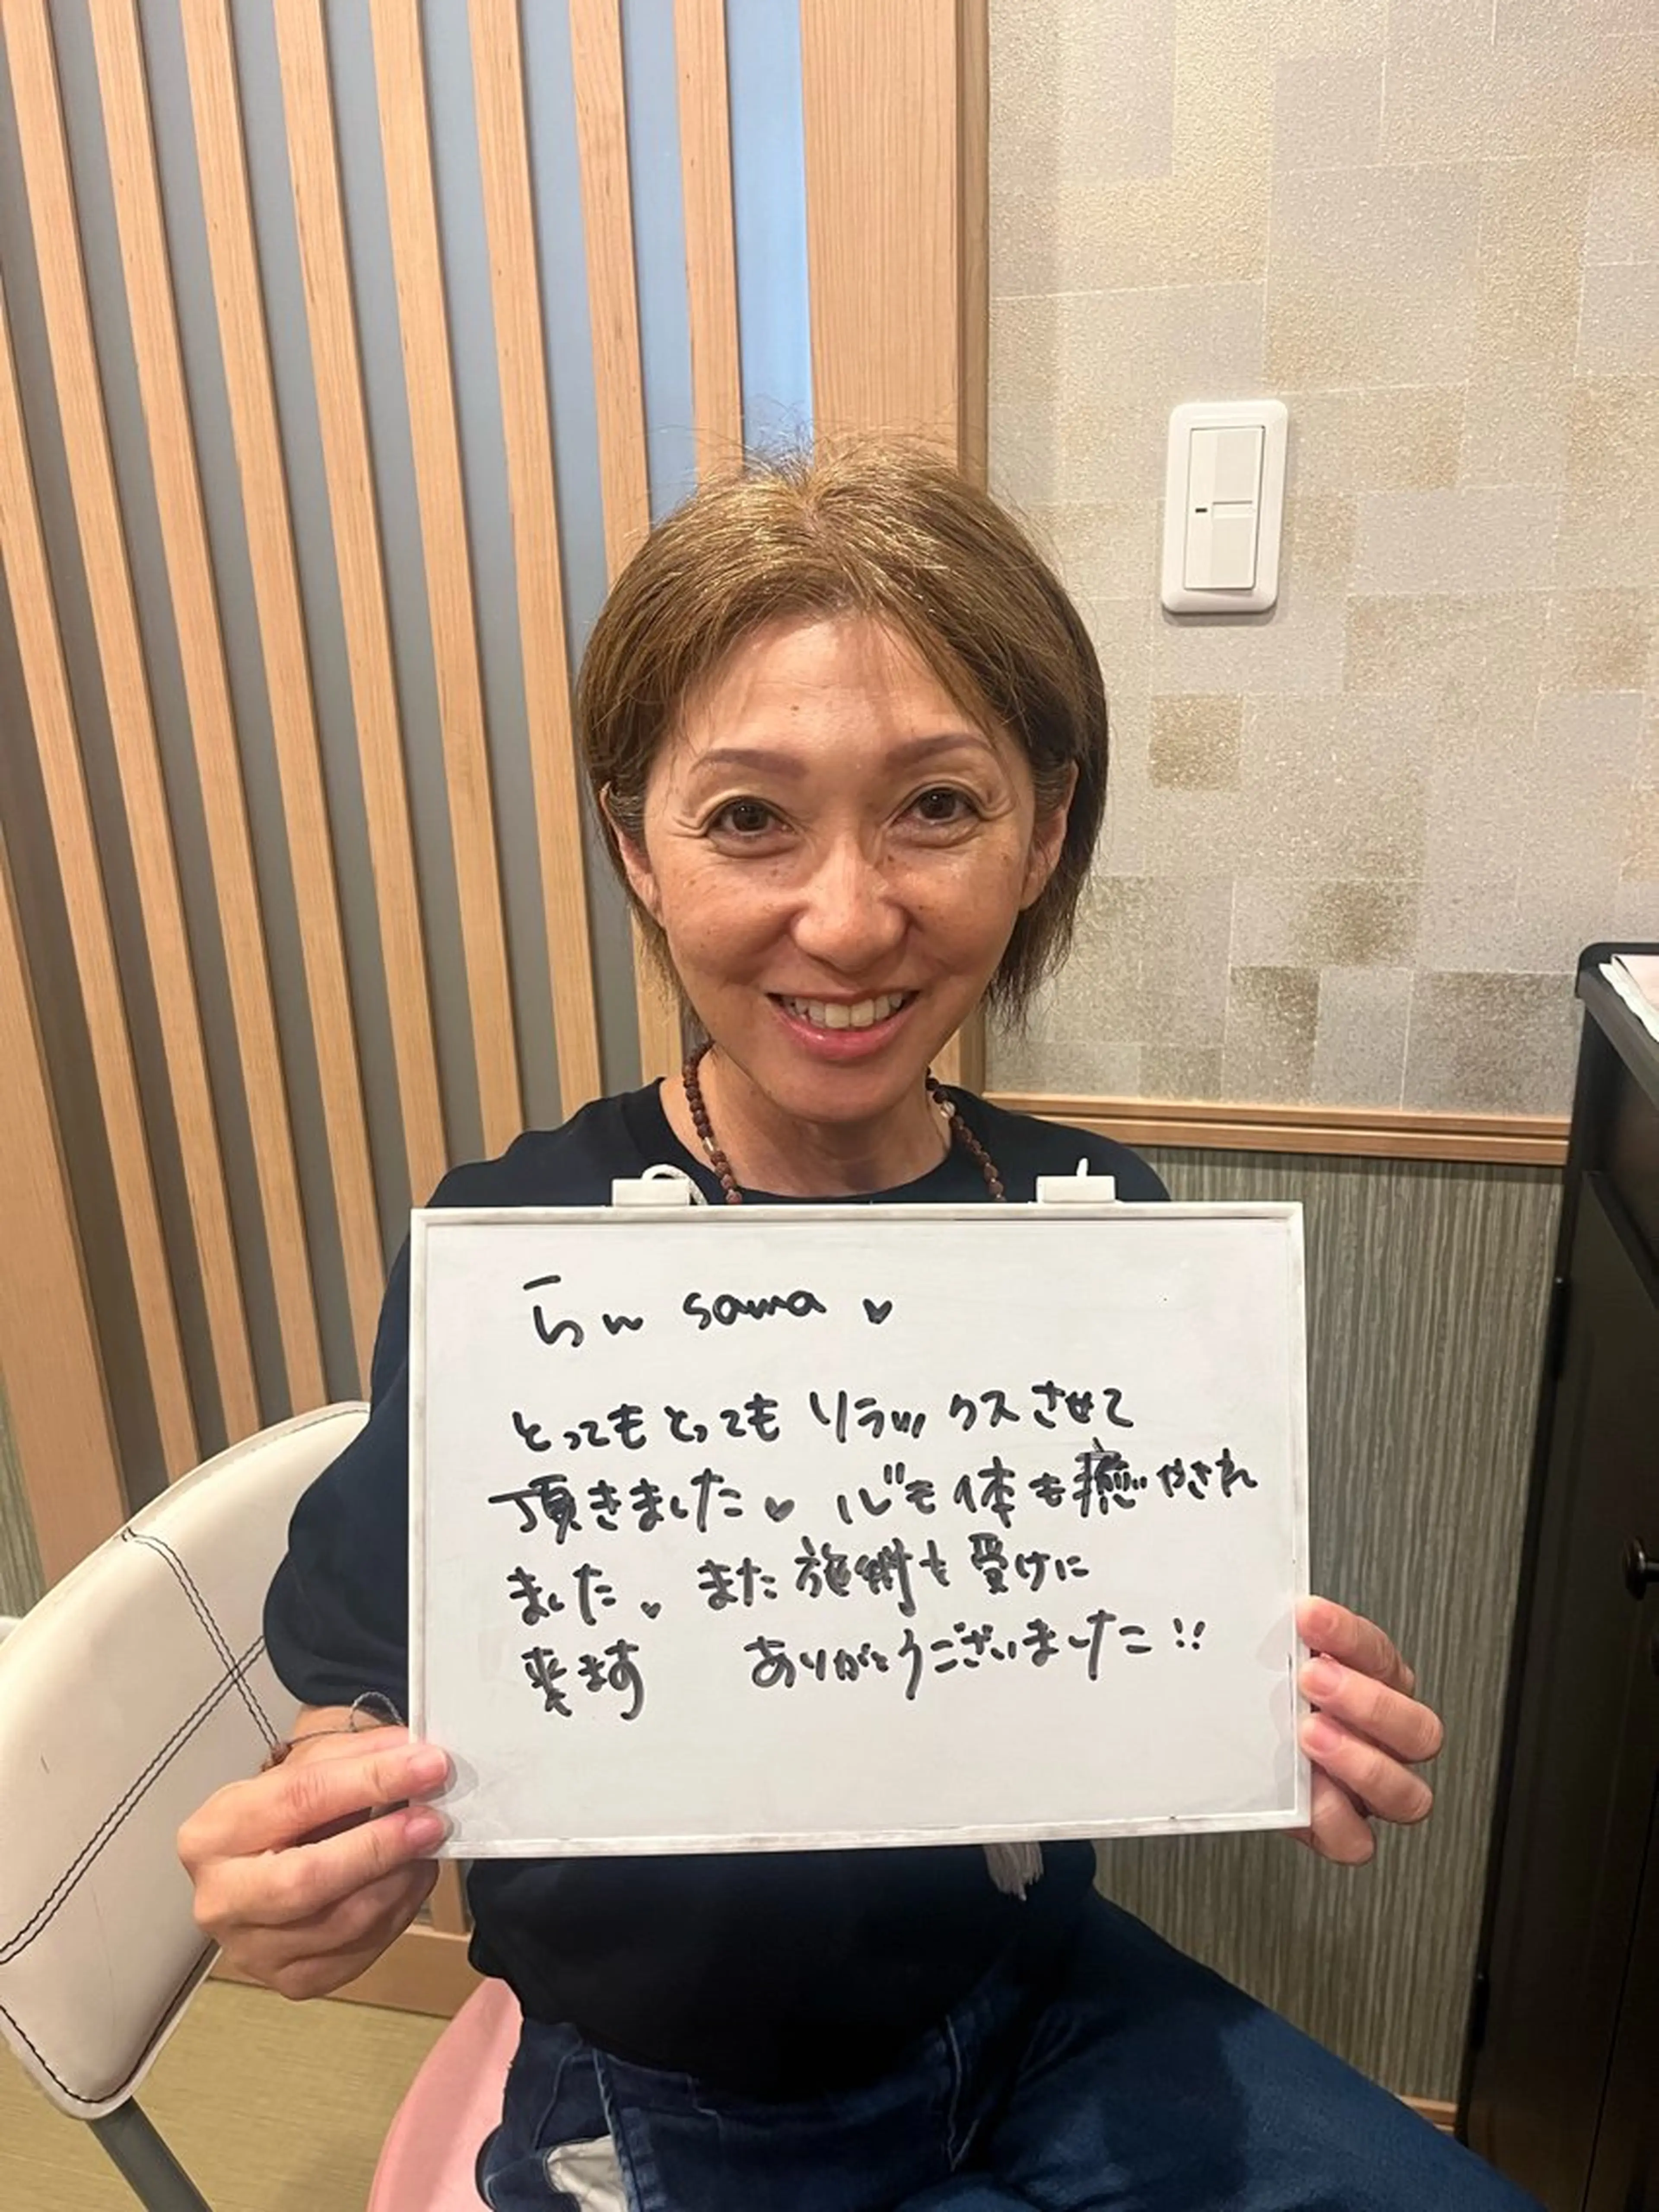 らん sama ♥
とってもとってもリラックスさせて
頂きました♥ 心も体も癒やされ
ました♥ また施術も受けに
来ます ありがとうございました!!